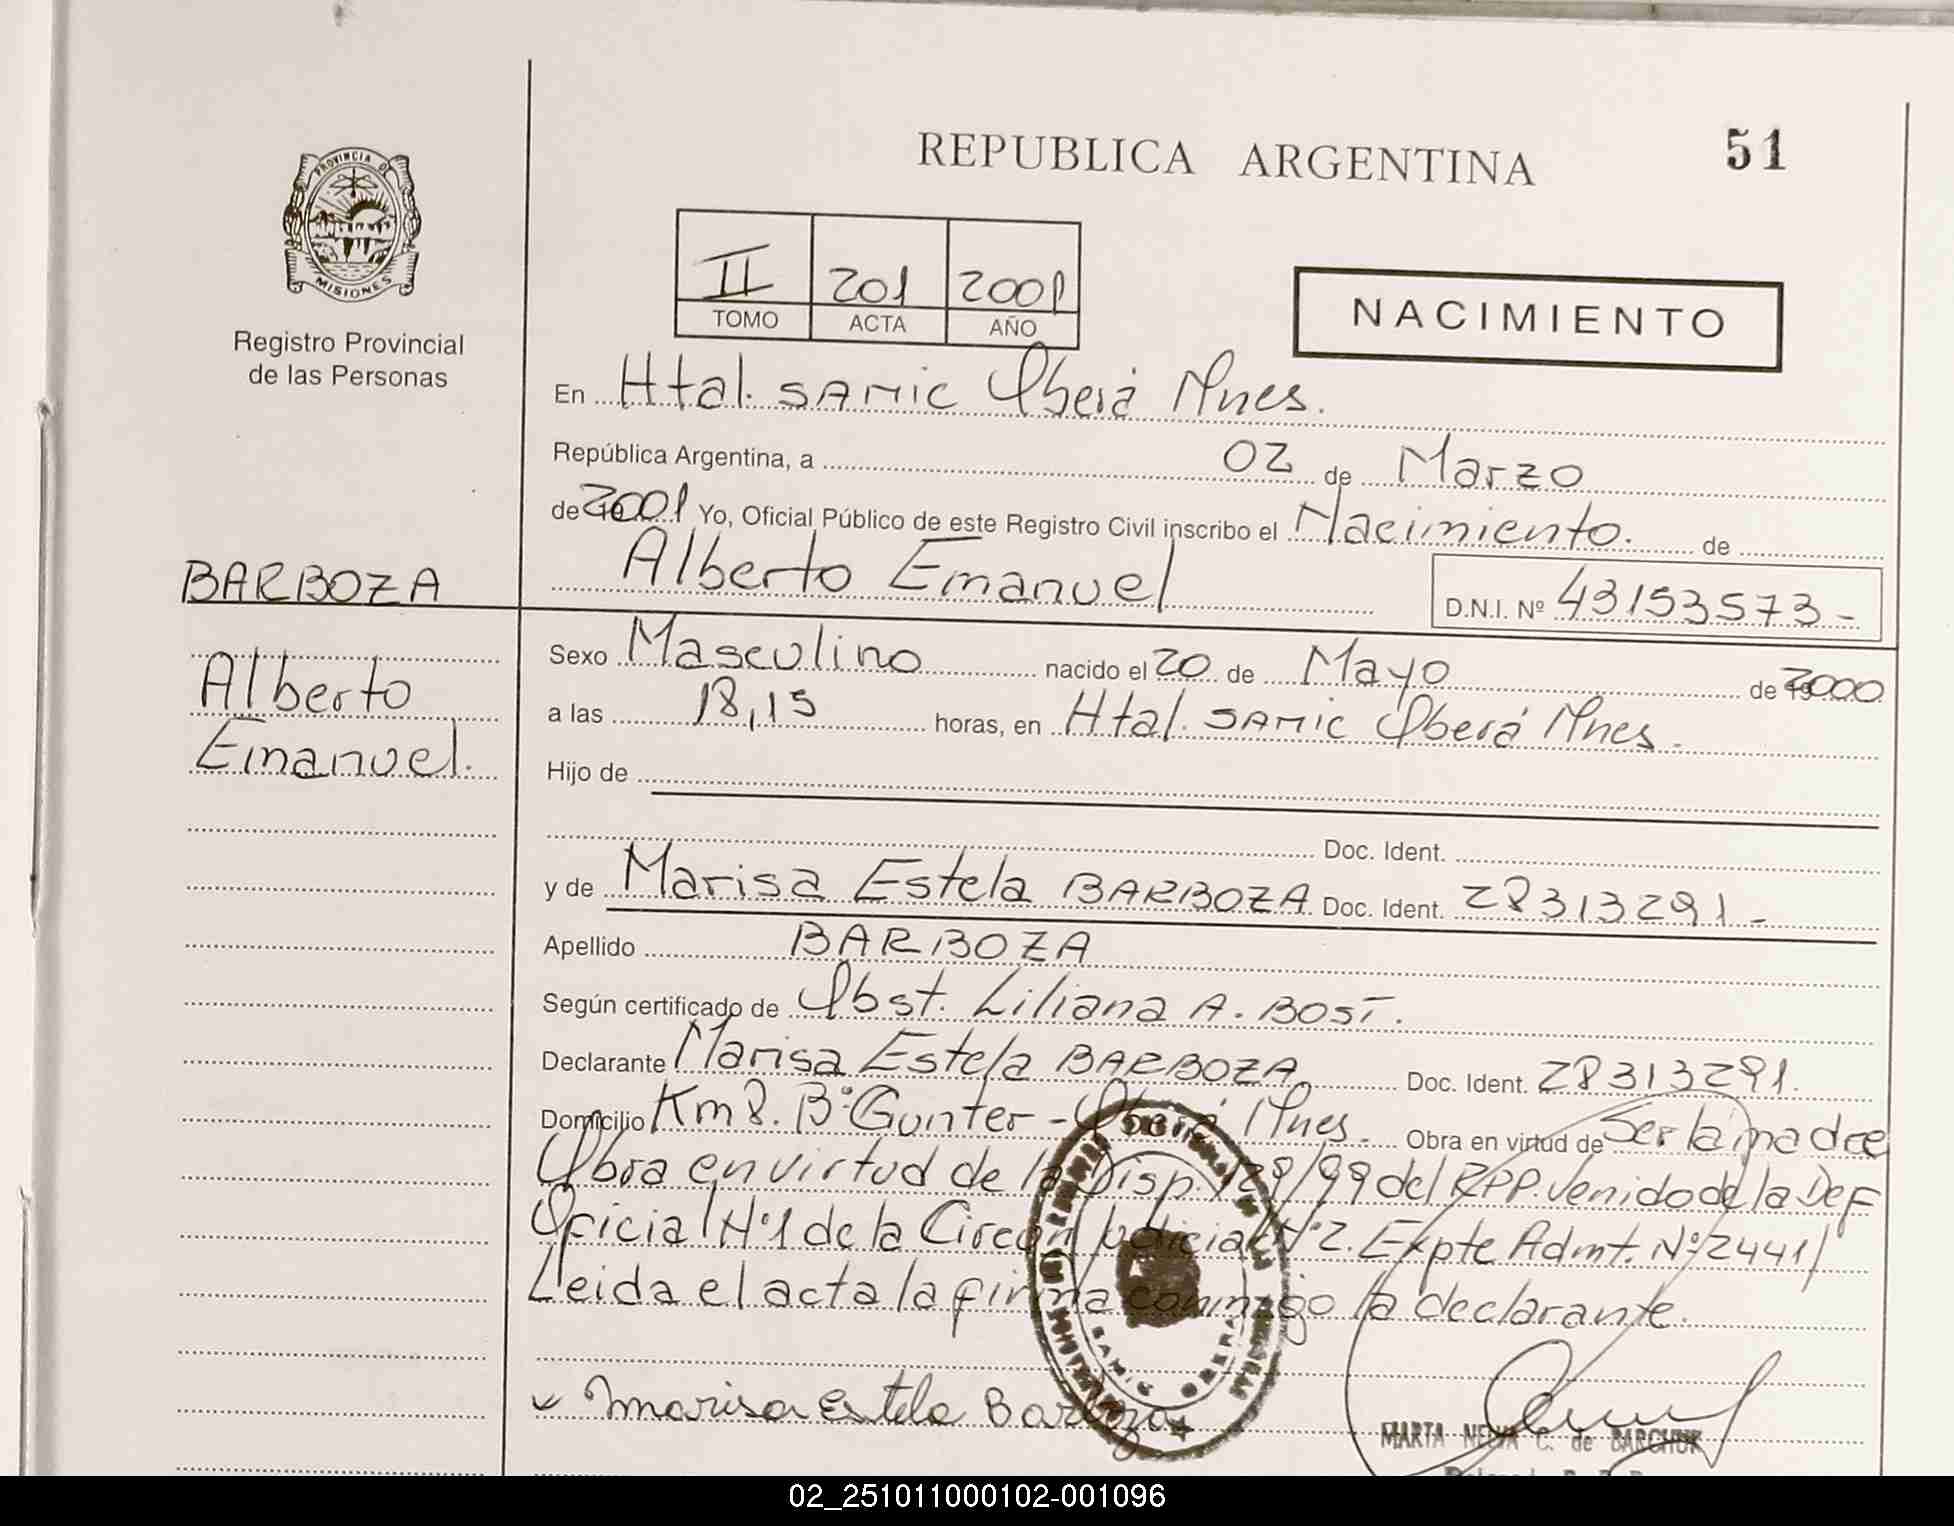 REPUBLICA ARGENTINA
51
PROVINCIA DE
MISIONES
Registro Provincial
de las Personas
II 201 2001
TOMO ACTA AÑO
NACIMIENTO
En Htal. SAMIC Oberá Mnes.
República Argentina, a 02 de Marzo
de 2001 Yo, Oficial Público de este Registro Civil inscribo el Nacimiento. de
Alberto Emanuel
D.N.I. Nº 43153573-
BARBOZA
Alberto
Emanuel.
Sexo Masculino nacido el 20 de Mayo de 2000
a las 18,15 horas, en Htal. SAMIC Oberá Mnes.
Hijo de
Doc. Ident.
y de Marisa Estela BARBOZA Doc. Ident. 28313291-
Apellido BARBOZA
Según certificado de Obst. Liliana A. BOST.
Declarante Marisa Estela BARBOZA Doc. Ident. 28313291.
Domicilio Km 8. Bº Gunter - Oberá Mnes. Obra en virtud de Ser la madre
Obra en virtud de la Disp. 128/99 del RPP. Venido de la Def
Oficial Nº1 de la Circun Judicial Nº2. Expte Admt. Nº 2441/
Leida el acta la firma conmigo la declarante.
Marisa Estela Barboza
SAMIC OBERA
MARTA NELVA C. de BARCHUK
02_251011000102-001096